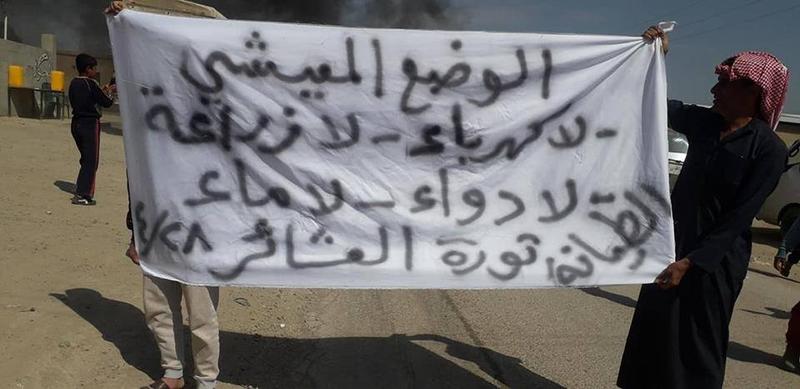 الوضع المعيشي
- لا كهرباء - لا زراعة
لا دواء - لا ماء
الطيانة، ثورة العشائر ٤/٢٨